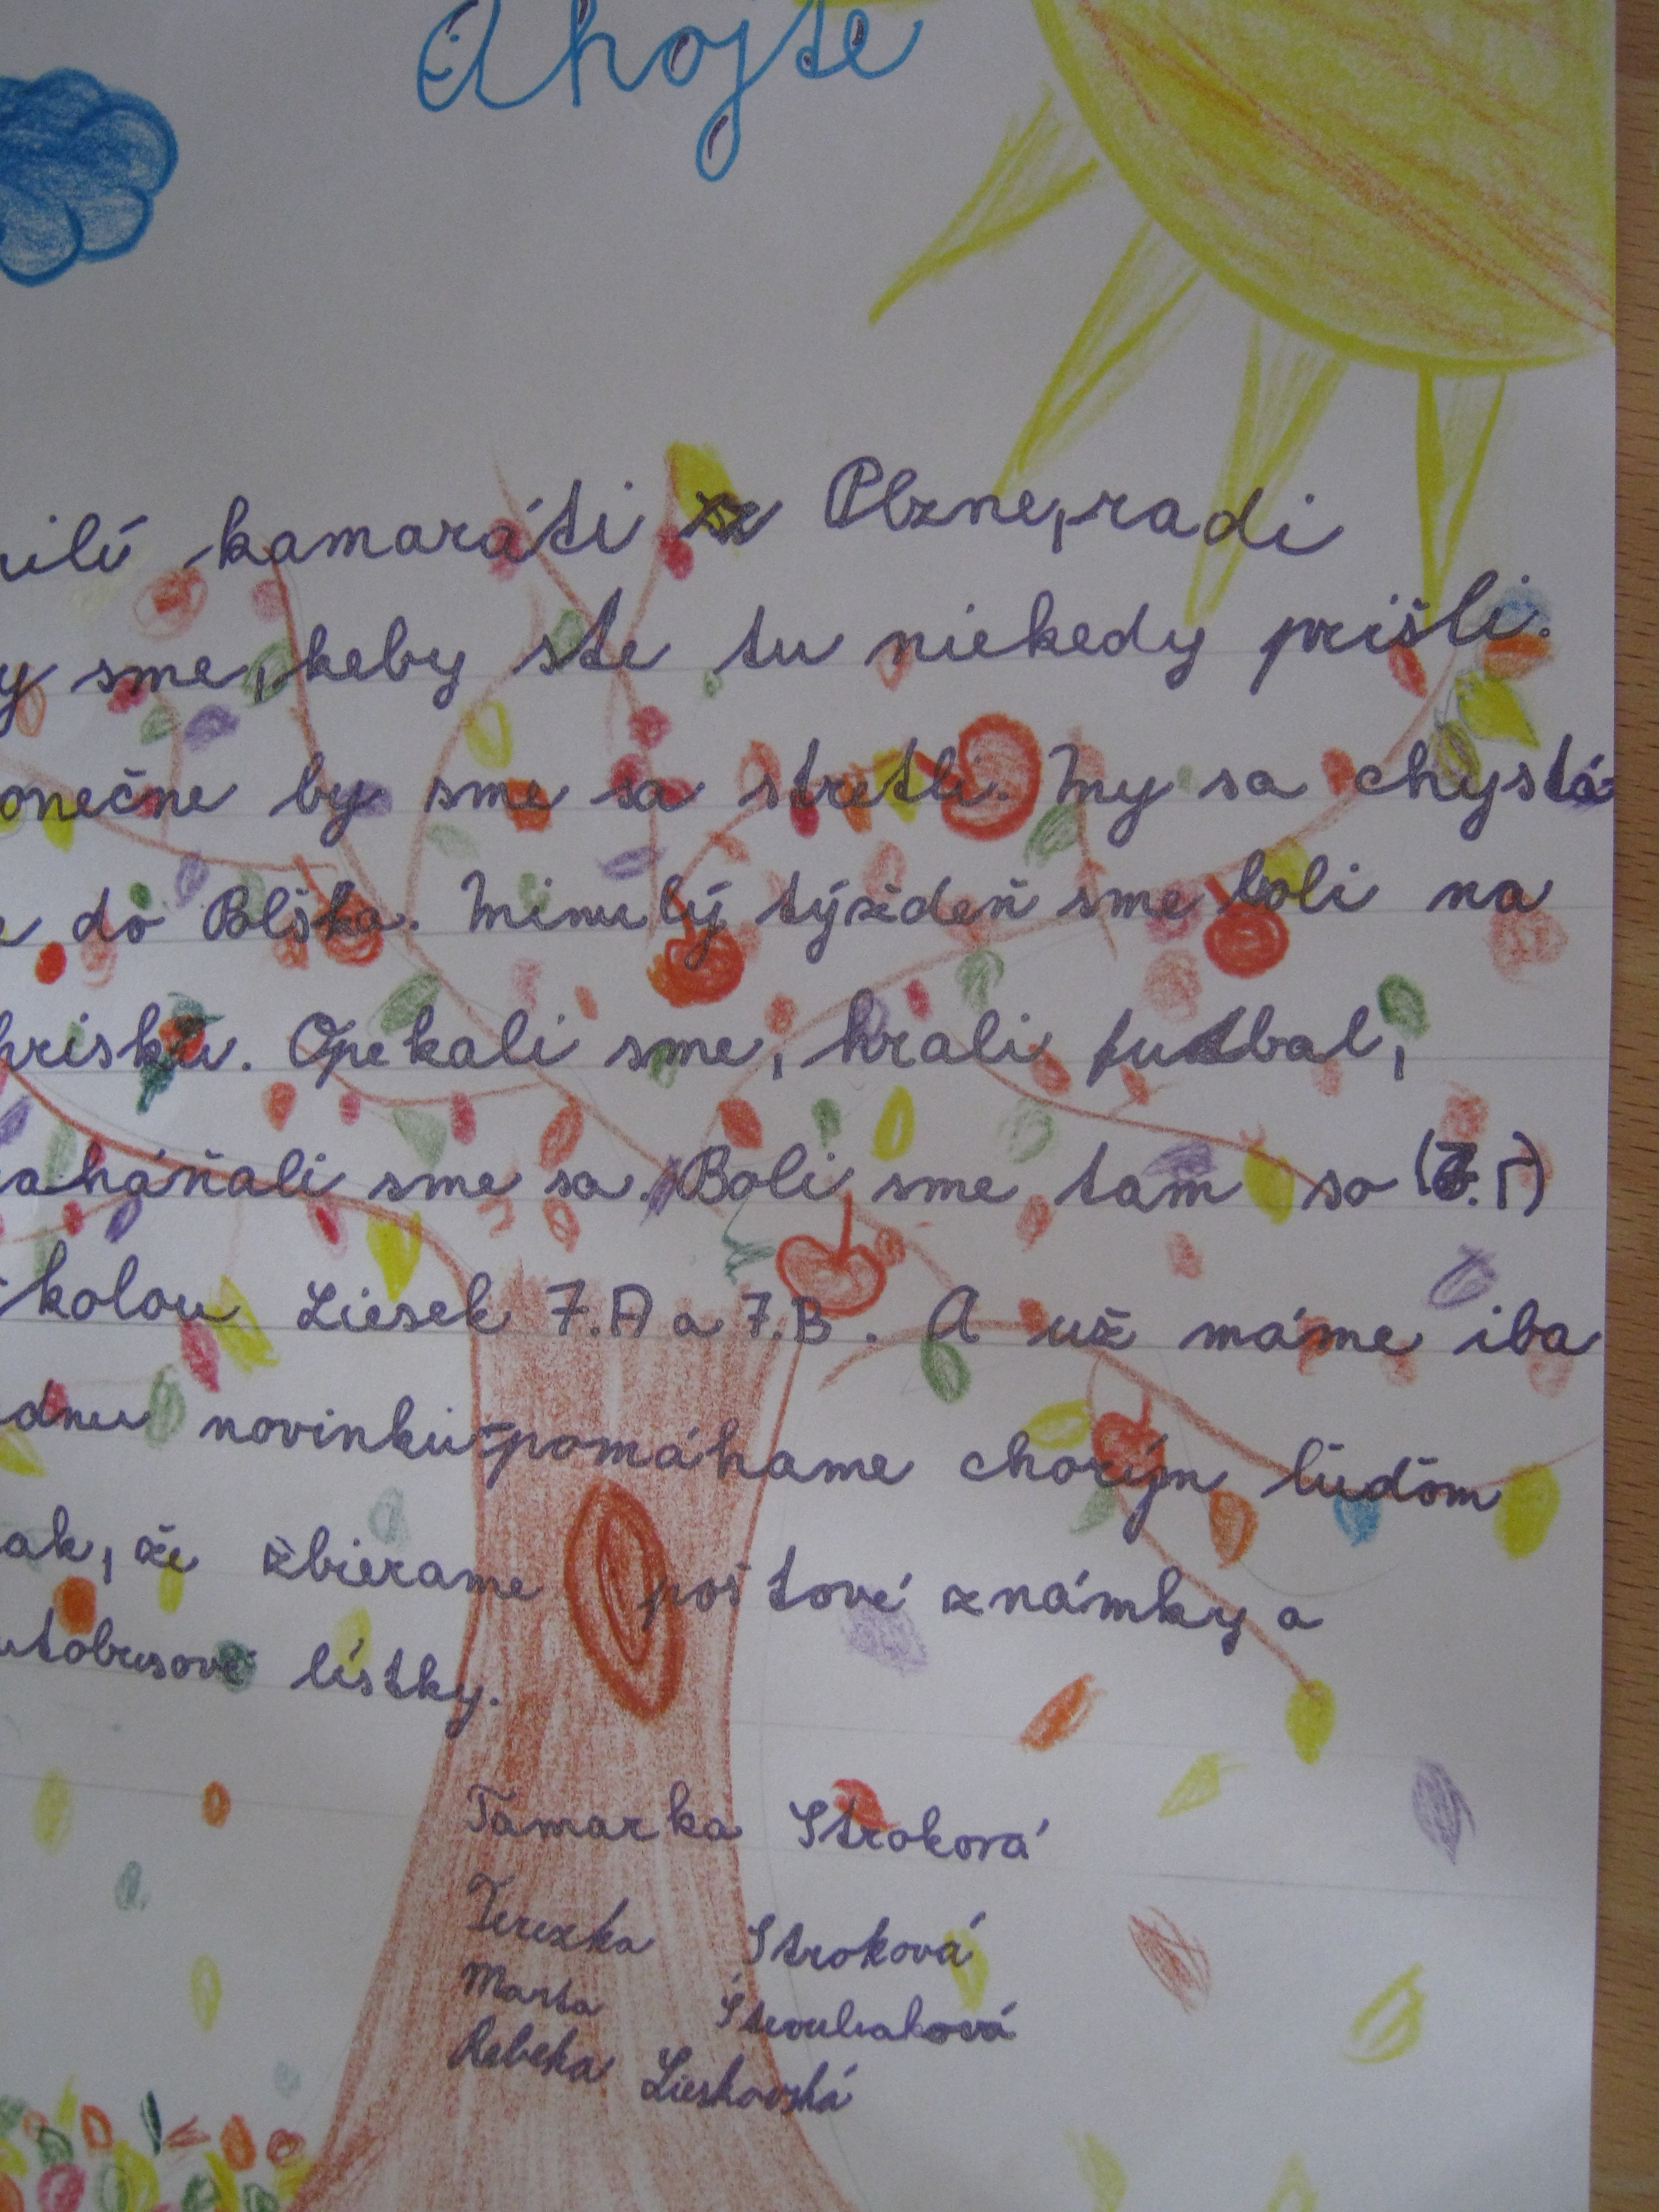 Ahojte
ilí kamaráti z Plzne, radi
y sme, keby ste tu niekedy prišli.
onečne by sme sa stretli. My sa chystá-
do Poľska. Minulý týždeň sme boli na
hrisku. Opekali sme, hrali futbal,
aháňali sme sa. Boli sme tam so
kolou Liesek 7.A a 7.B. A už máme iba
dnu novinku-pomáhame chorým ľuďom
ak, že zbierame poštové známky a
utobusové lístky.
Tamarka Stroková
Terezka Stroková
Marta
Rebeka Lieskovská